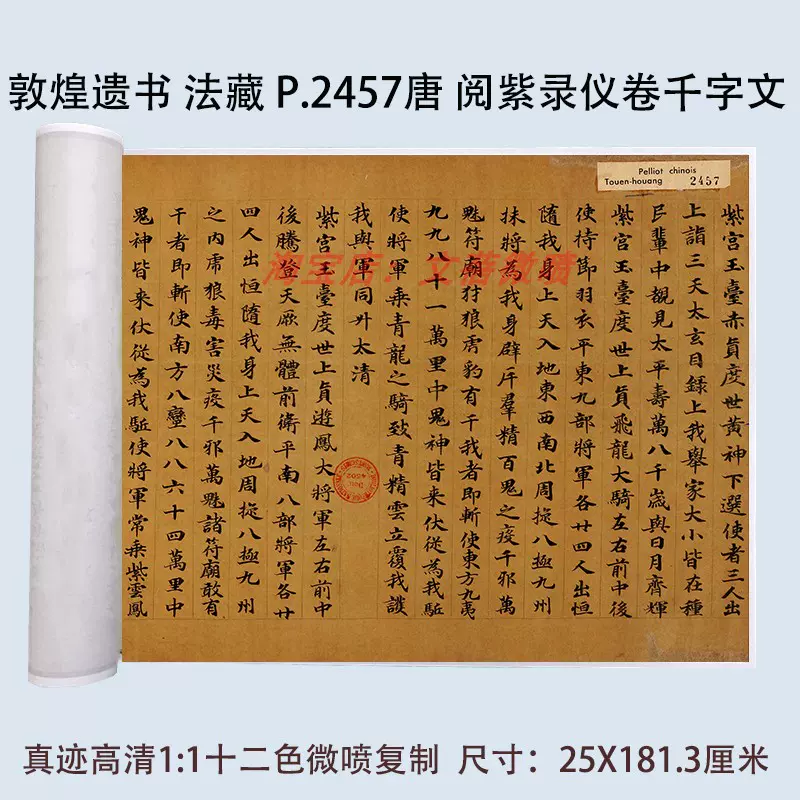 敦煌遗书 法藏 P.2457唐 阅紫录仪卷千字文
Pelliot chinois
Touen-houang 2457
紫宫玉臺赤真度世黃神下選使者三人出
上詣三天太玄目録上我舉家大小皆在種
民輩中覩見太平壽萬八千歲與日月齊輝
紫宫玉臺度世上真飛龍大騎左右前中後
使持節羽衣平東九部將軍各廿四人出恒
隨我身上天入地東西南北周旋八極九州
抹將為我身辟斥羣精百鬼之疫千邪萬
魅符廟犲狼虎豹有干我者即斬使東方九夷
九九八十一萬里中鬼神皆来伏從為我駈
使將軍乘青龍之騎致青精雲立覆我護
我與軍同升太清
紫宫玉臺度世上真遊鳳大將軍左右前中
後騰登天厥無體前衛平南八部將軍各廿
四人出恒隨我身上天入地周旋八極九州
之内虎狼毒害災疫千邪萬魅諸符廟敢有
干者即斬使南方八蠻八八六十四萬里中
鬼神皆来伏從為我駈使將軍常乘紫雲鳳
淘宝店：微喷
真迹高清1:1十二色微喷复制 尺寸：25X181.3厘米